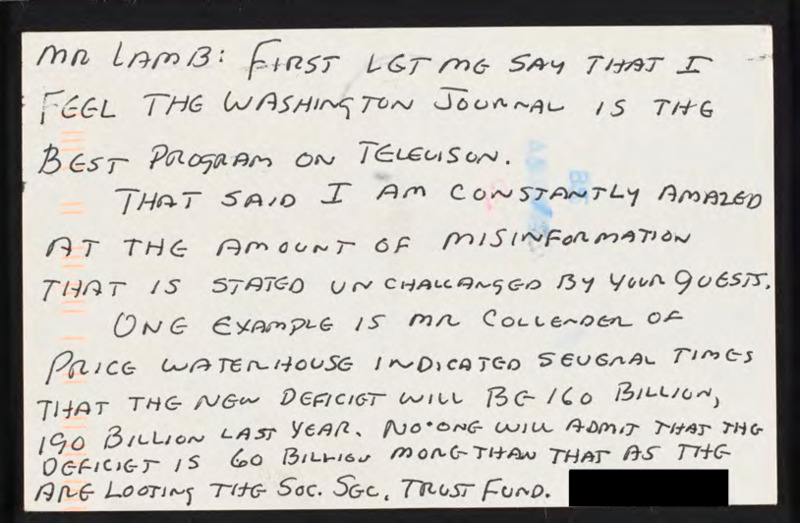 MR LAMB: FIRST LET ME SAY THAT I
FEEL THE WASHINGTON JOURNAL IS THE
BEST PROGRAM ON TELEVISON.
THAT SAID I AM CONSTANTLY AMAZED
AT THE AMOUNT OF MISINFORMATION
THAT IS STATED UNCHALLANGED BY YOUR GUESTS.
ONE EXAMPLE IS MR COLLENDER OF
PRICE WATERHOUSE INDICATED SEVERAL TIMES
THAT THE NEW DEFICIET WILL BE 160 BILLION,
190 BILLION LAST YEAR. NO-ONE WILL ADMIT THAT THE
DEFICIET IS 60 BILLION MORE THAN THAT AS THE
ARE LOOTING THE SOC. SEC. TRUST FUND.